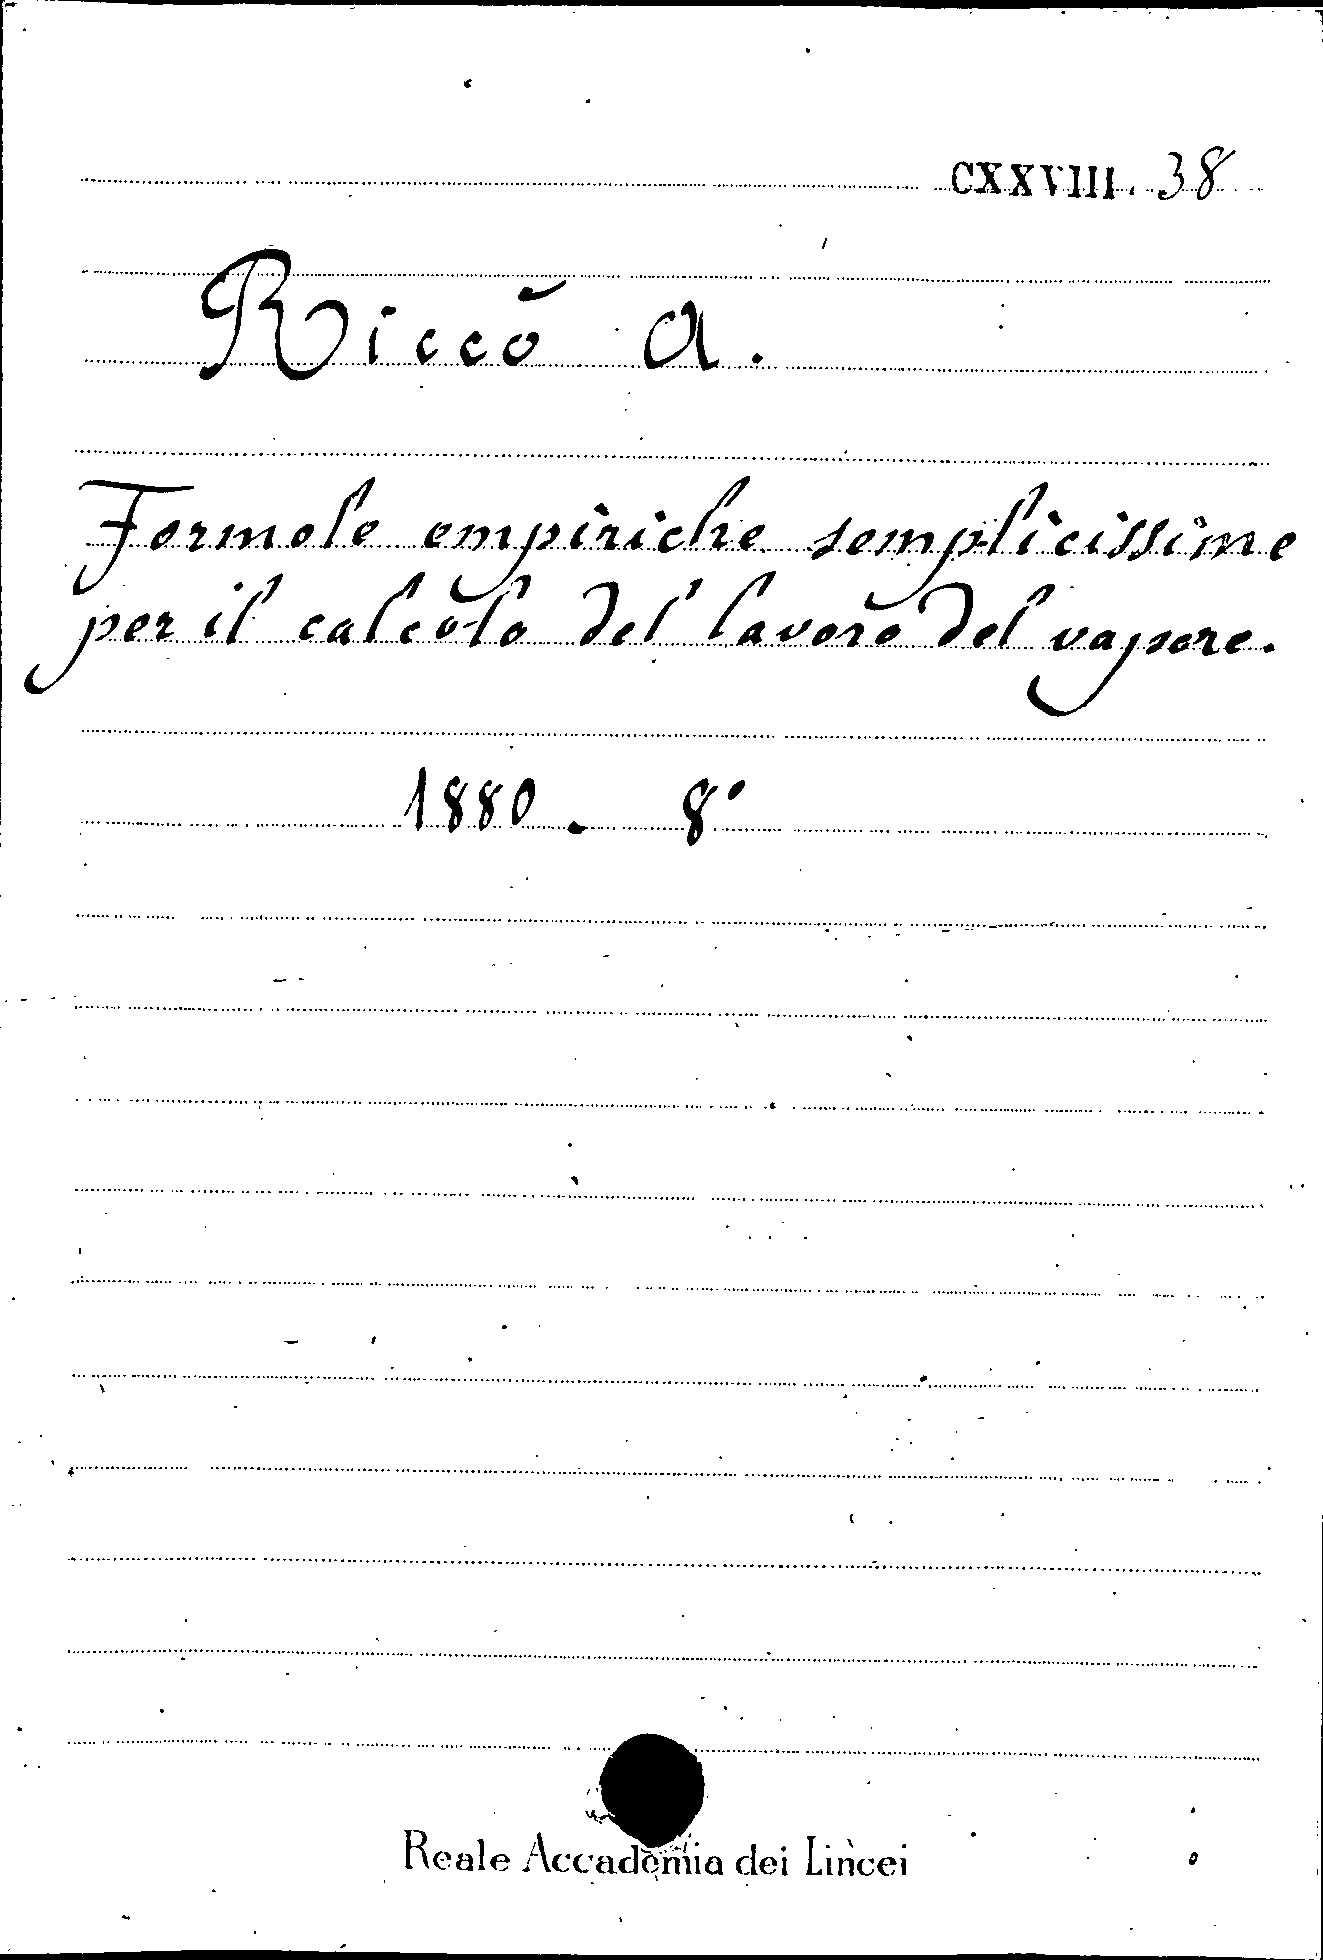 CXXVIII. 38
Riccò A.
Formole empiriche semplicissime
per il calcolo del lavoro del vapore.
1880. 8°
Reale Accademia dei Lincei